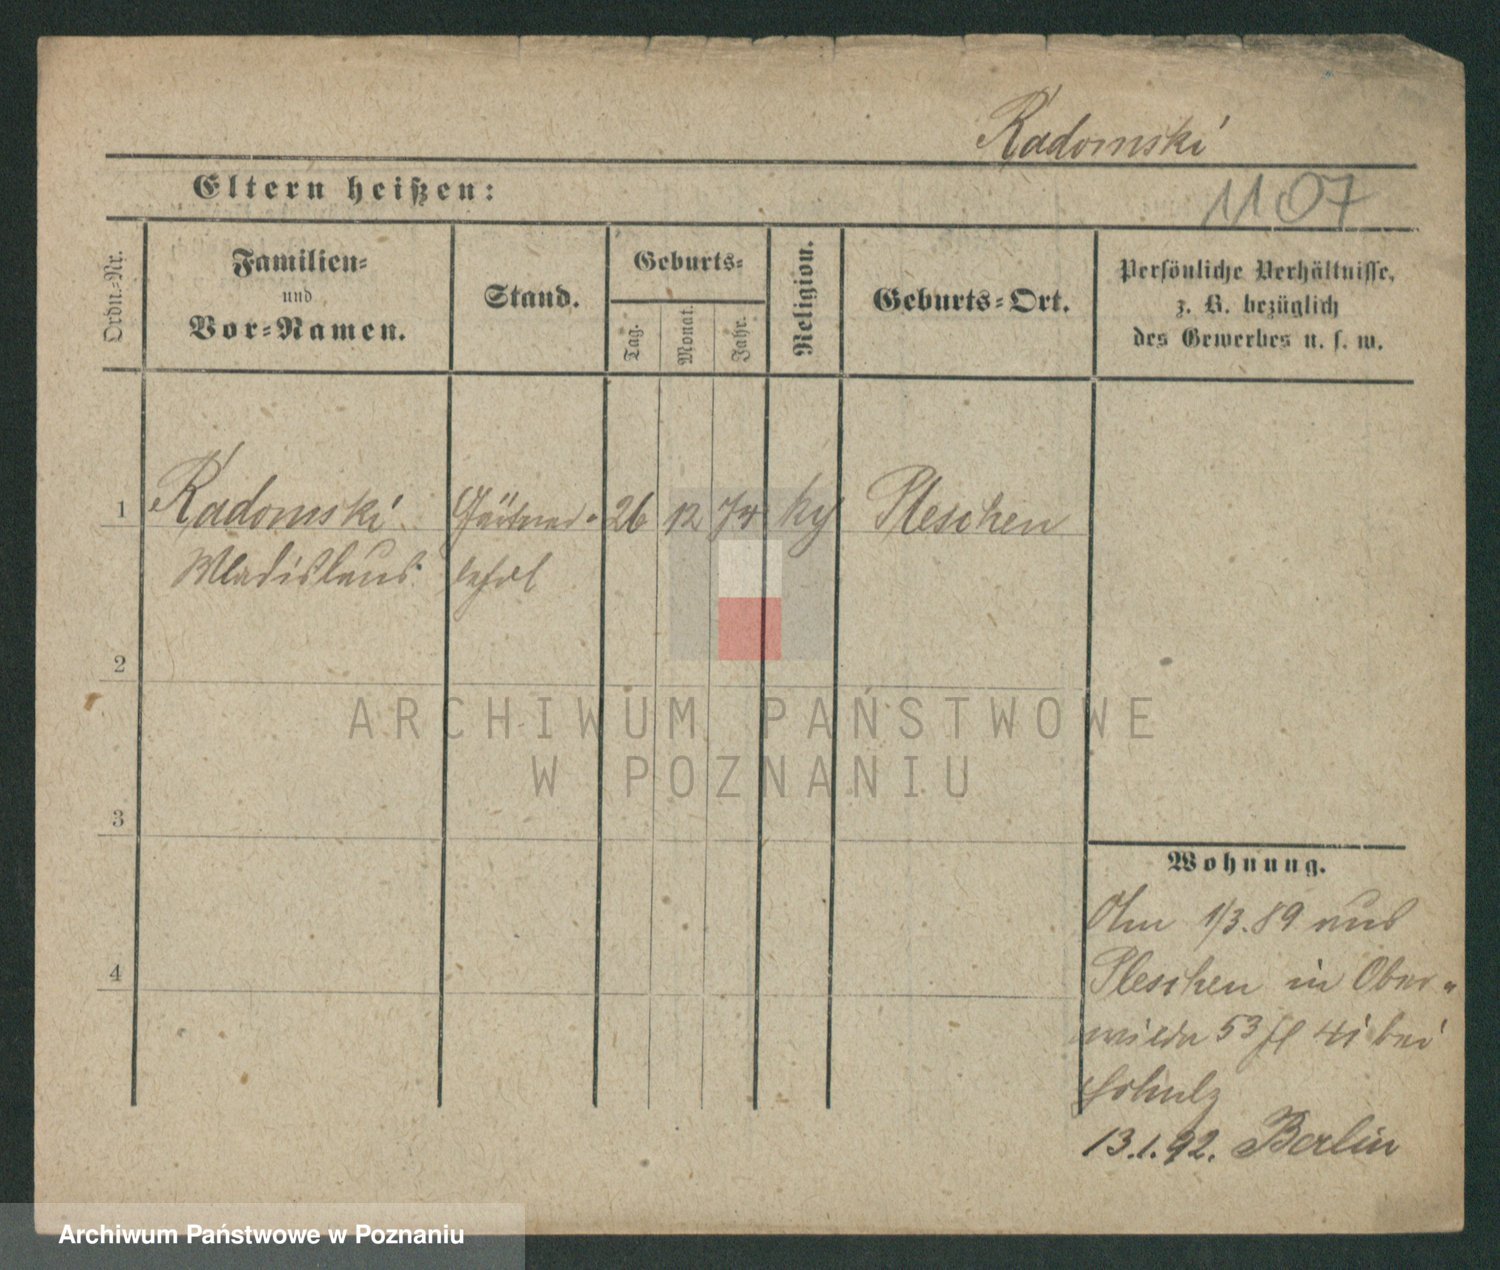 Radomski
Eltern heißen:
1107
Ordn.-Nr.
Familien-
und
Vor-Namen.
Stand.
Geburts-
Tag.
Monat.
Jahr.
Religion.
Geburts-Ort.
Persönliche Verhältnisse,
z. B. bezüglich
des Gewerbes u. s. w.
1 Radomski Gärtner- 26 12 74 Pleschen
Wladislaus. lehrl
2
ARCHIWUM PAŃSTWOWE
W POZNANIU
3
Wohnung.
1/3.89 aus
4
Pleschen in Ober-
wilda 53 bei
Schulz
13.1.92. Berlin
Archiwum Państwowe w Poznaniu